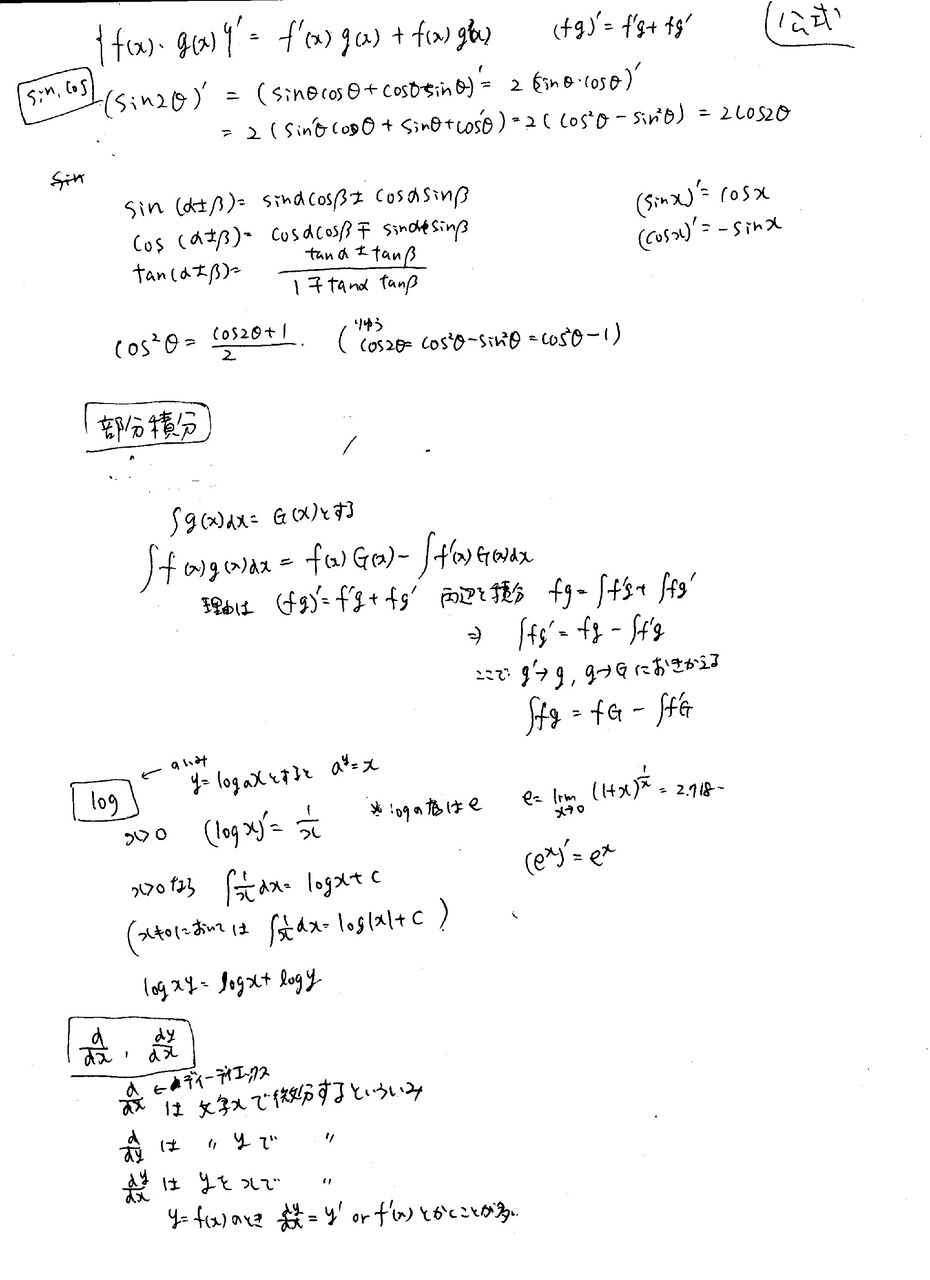 {f(x)・g(x)}' = f'(x)g(x) + f(x)g'(x)   (fg)' = f'g + fg'   (公式)
sin, cos
(sin2θ)' = (sinθcosθ + cosθsinθ)' = 2(sinθ・cosθ)'
= 2(sin'θcosθ + sinθ+cos'θ) = 2(cos²θ - sin²θ) = 2cos2θ
sin
sin(α±β) = sinαcosβ ± cosαsinβ   (sinx)' = cosx
cos(α±β) = cosαcosβ ∓ sinαsinβ   (cosx)' = -sinx
tan(α±β) = (tanα ± tanβ)/(1 ∓ tanα tanβ)
cos²θ = (cos2θ+1)/2.   (りゆう cos2θ = cos²θ - sin²θ = cos²θ - 1)
部分積分
∫g(x)dx = G(x)とする
∫f(x)g(x)dx = f(x)G(x) - ∫f'(x)G(x)dx
理由は (fg)' = f'g + fg' 両辺を積分 fg = ∫f'g + ∫fg'
⇒ ∫fg' = fg - ∫f'g
ここで g'→g, g→Gにおきかえる
∫fg = fG - ∫f'G
log ← のいみ y = logaxとすると a^y = x
x>0 (logx)' = 1/x   ※logの底はe   e = lim x→0 (1+x)^(1/x) = 2.718…
(e^x)' = e^x
x>0なら ∫1/x dx = logx + C
(x≠0においては ∫1/x dx = log|x| + C)
logxy = logx + logy
d/dx , dy/dx
d/dx ← ディーディエックス
は 文字xで微分するといういみ
d/dy は 〃 yで 〃
dy/dx は yをxで 〃
y = f(x)のとき dy/dx = y' or f'(x)とかくことが多い